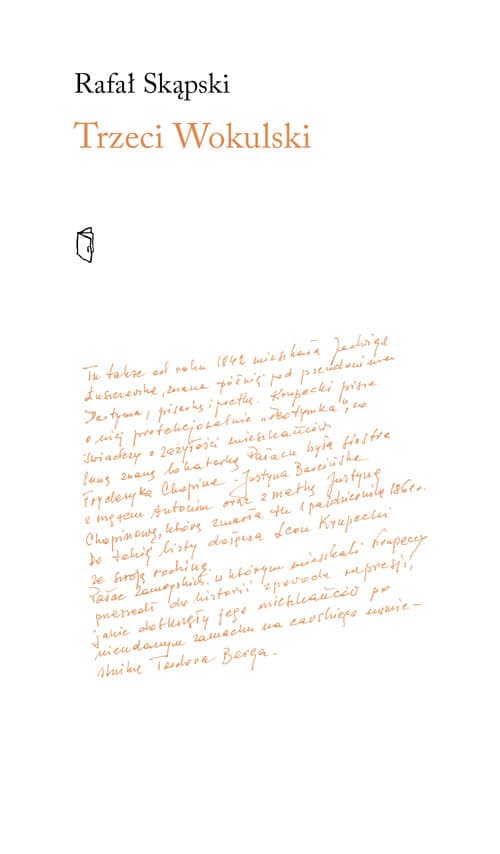 Rafał Skąpski
Trzeci Wokulski
Tu także od roku 1842 mieszkała Jadwiga
Łuszczewska, znana później pod pseudonimem
Deotyma, pisarka i poetka. Krupecki pisze
o niej protekcjonalnie „Deotymka”, co
świadczy o zażyłości mieszkańców.
Inną znaną lokatorką Pałacu była siostra
Fryderyka Chopina - Justyna Barcińska
z mężem Antonim oraz z matką Justyną
Chopinową, która zmarła tu 1 października 1861 r.
Do takiej listy dołącza Leon Krupecki
ze swoją rodziną.
Pałac Zamoyskich, w którym mieszkali Krupeccy
przeszedł do historii z powodu represji,
jakie dotknęły jego mieszkańców po
nieudanym zamachu na carskiego namie-
stnika Teodora Berga.